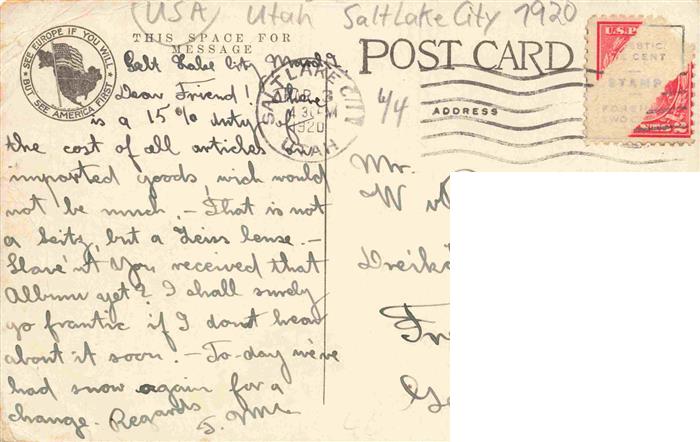 (USA) Utah Salt Lake City 1920
SEE EUROPE IF YOU WILL
BUT SEE AMERICA FIRST
THIS SPACE FOR
MESSAGE
POST CARD
ADDRESS
SALT LAKE CITY
3
1920
UTAH
U.S.P
STAMP
4/4
Salt Lake City March 2
Dear Friend! There
is a 15% duty of
the cost of all articles on
imported goods, wich would
not be much. – That is not
a Seitz, but a Zeiss lense. –
Have'nt You received that
Album yet? I shall surely
go frantic if I dont hear
about it soon. – To-day we've
had snow again for a
change. Regards
Mr.
W